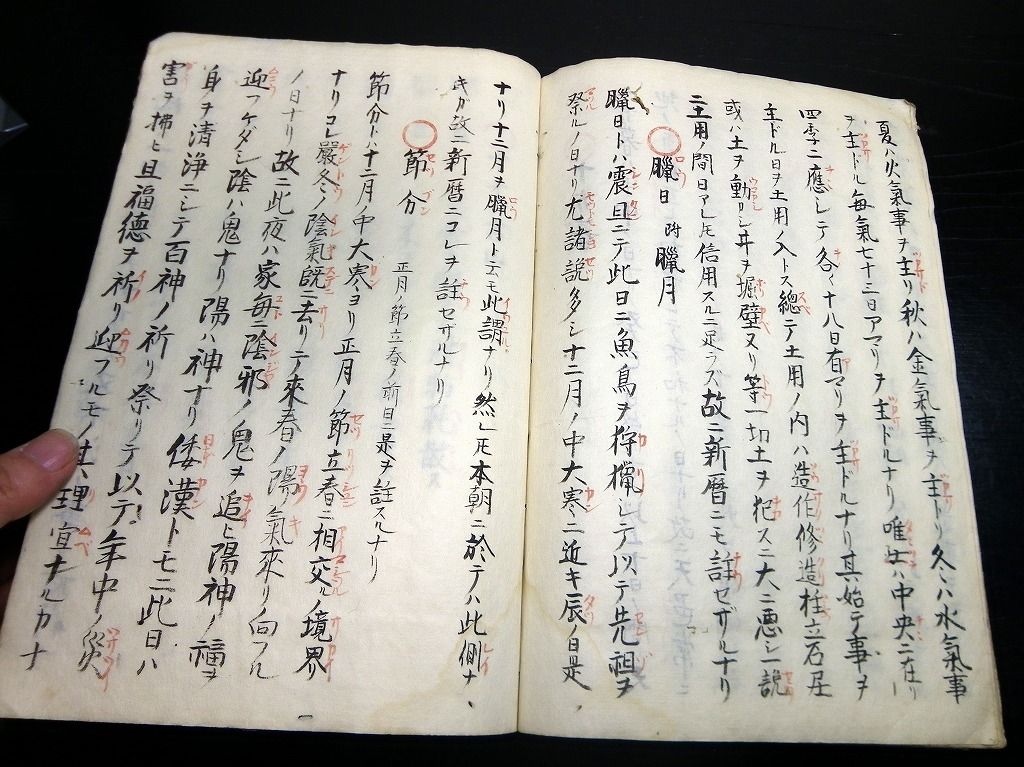 夏ハ火氣事ヲ主リ秋ハ金氣事ヲ主トリ冬ハ水氣事
ヲ主ドル毎氣七十三日アマリヲ主ドルナリ唯土ハ中央ニ在リ
四季ニ應シテ各々十八日有マリヲ主ドルナリ其始テ事ヲ
主ドル日ヲ土用ノ入トス總テ土用ノ内ハ造作修造柱立石居
或ハ土ヲ動シ井ヲ堀壁ヌリ等一切土ヲ犯スニ大ニ悪シ一説
ニ土用ノ間日アレ𪜈信用スルニ足ラズ故ニ新暦ニモ註セザルナリ
○臘日 附 臘月
臘日トハ震旦ニテ此日ニ魚鳥ヲ狩獵シテ以テ先祖ヲ
祭ルノ日ナリ尤諸説多シ十二月ノ中大寒ニ近キ辰ノ日是
ナリ十二月ヲ臘月ト云モ此謂ナリ然レ𪜈本朝ニ於テハ此例ナ
キガ故ニ新暦ニコレヲ註セザルナリ
○節分 正月ノ節立春ノ前日ニ是ヲ註スルナリ
節分トハ十二月ノ中大寒ヨリ正月ノ節立春ニ相交ルノ境界
ナリコレ嚴冬ノ陰氣既ニ去リテ來春ノ陽氣來リノ向フル
ノ日ナリ故ニ此夜ハ家毎ニ陰邪ノ鬼ヲ追ヒ陽神ノ福ヲ
迎フケダシ陰ハ鬼ナリ陽ハ神ナリ倭漢トモニ此日ハ
身ヲ清浄ニシテ百神ノ祈リ祭リテ以テ年中ノ災
害ヲ拂ヒ且福徳ヲ祈リ迎フルモノ其理宜ナルカナ